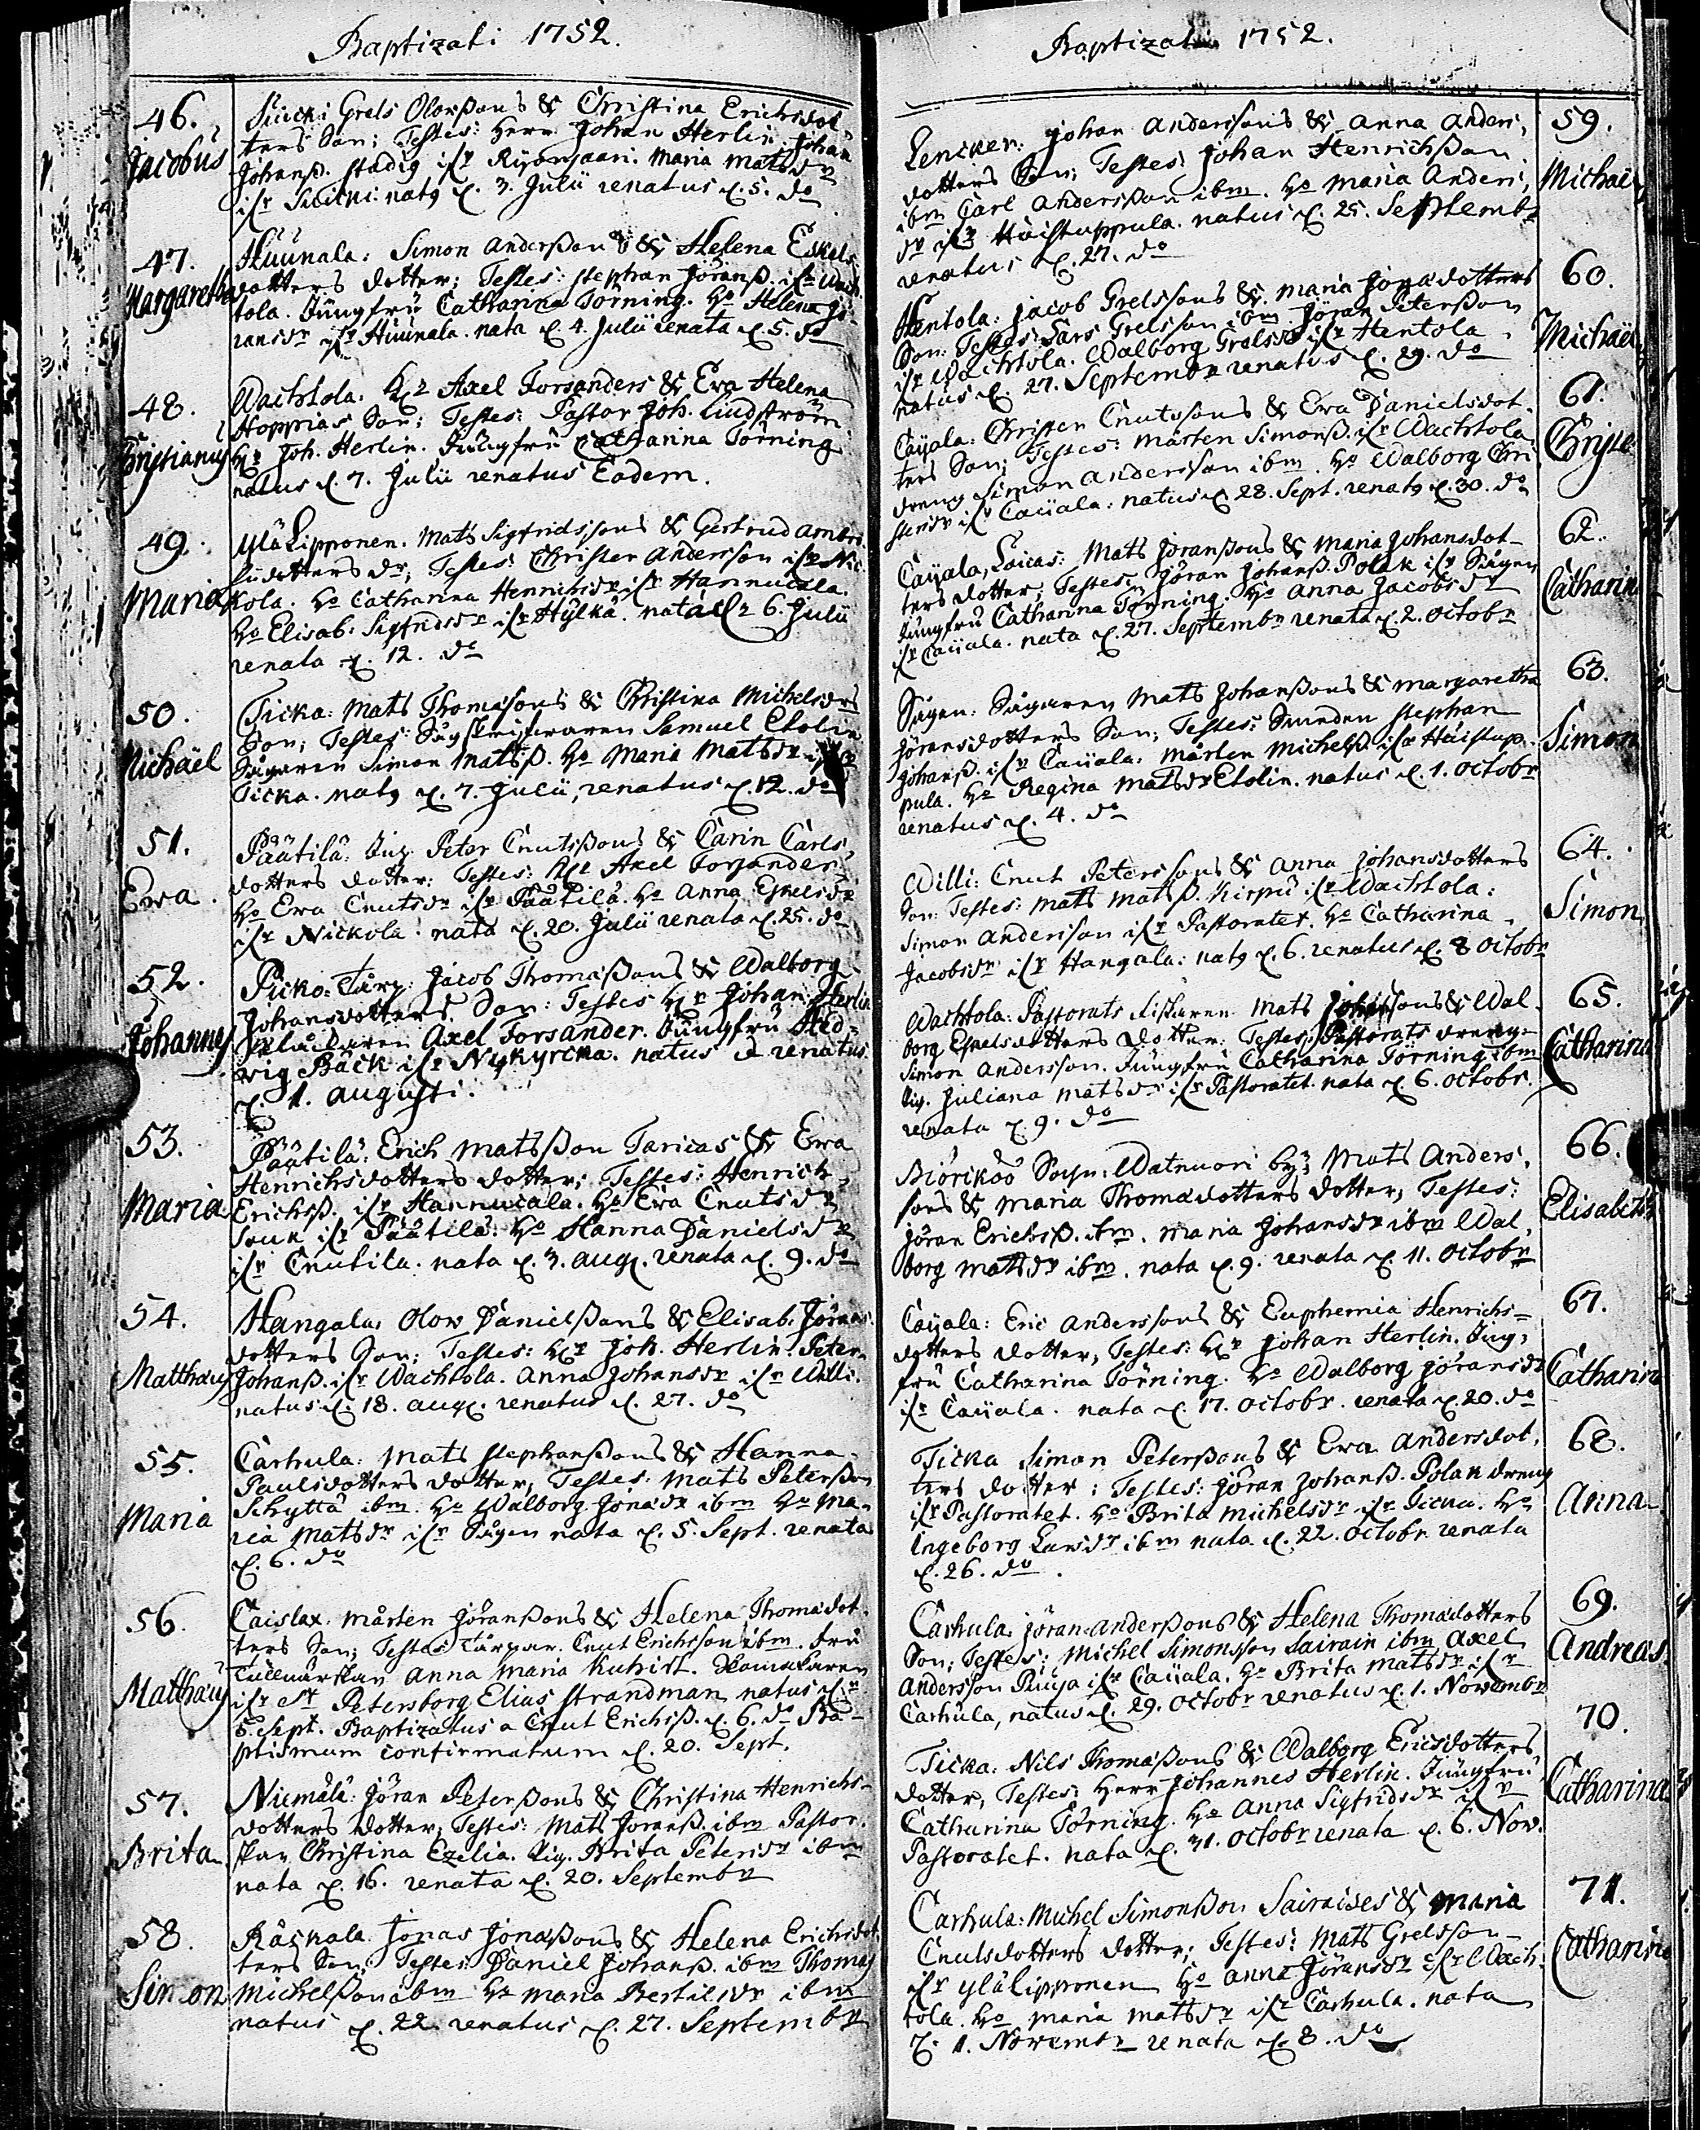 Baptizati 1752.
46.
Jacobus
Grels Olorßons & Christina Erichsdot
ters Son; Testes: Herr Johan Herlin. Johan
Johanß. stadig Ryönsaari. Maria Matsdr
nat9 d. 3. Julii renatus d. 5. do
47.
Margaretha
Huunala: Simon Anderßons & Helena Eskels
dotters dotter; Testes: Stephan Jöranß. ifr Wach
tola. Jungfru Catharina Törning. Ho Helena Jö-
ransdr ifr Huunala. nata d. 4. Julii renata d. 5. do
48.
Christianus
Wachtola. Hr Axel Forsanders & Eva Helena
Hoppias Son; Testes: Pastor Joh. Lindström
Hr Joh. Herlin. Jungfru Catharina Törning
natus d. 7. Julii renatus Eodem.
49.
Maria
Ylä Lipponen. Mats Sigfridssons & Gertrud Ambro
sudotters dr; Testes: Christer Andersson ifr Nic
kola. Ho Catharina Henrichsdr ifr Hannucala.
Ho Elisab. Sigfridsdr ifr Hylkä. nata d. 6. Julii
renata d. 12. do
50.
Michäel
Ticka: Mats Thomæsons & Christina Michelsdrs
Son; Testes: Sågskrifwaren Samuel Etolin
Sågaren Simon Matsß. Ho Maria Matsdr ifr
Ticka. nat9 d. 7. Julii, renatus d. 12. do
51.
Ewa.
Päätilä: Peter Cnutsßons & Carin Carls
dotters dotter: Testes: Hr Axel Forsander.
Ho Ewa Cnutsdr ifr Päätilä. Ho Anna Eskelsdr
ifr Nickola. nata d. 20. Julii renata d. 25. do
52.
Johannes
Picko: Torp: Jacob Thomæßons & Walborg
Johansdotters Son: Testes Hr Johan Herlin
Axel Forsander. Jungfru Hed-
vig Bäck ifr Nykyrcka. natus & renatus
d. 1. Augusti.
53.
Maria
Päätilä: Erich Matsßon Taricas & Ewa
Henrichsdotters dotter; Testes: Henrich
Erichsß. ifr Hannucala. Ho Ewa Cnutsdr
ifr Päätilä: Ho Hanna Danielsdr
ifr Cnutila. nata d. 3. Aug. renata d. 9. do
54.
Matthæus
Hangala: Olow Danielßons & Elisab. Jöran
dotters Son; Testes: Hr Joh. Herlin. Peter
Johanß. ifr Wachtola. Anna Johansdr ifr Willi.
natus d. 18. Aug. renatus d. 27. do
55.
Maria
Carhula: Mats Stephanßons & Hanna
Paulsdotters dotter; Testes: Mats Peterßon
Schyttä ibm. Ho Walborg Jonædr ibm Ho Ma-
ria Matsdr ifr Sågen nata d. 5. Sept. renata
d. 6. do
56.
Matthæus
Caislax. Mårten Jöranßons & Helena Thomædot
ters Son; Testes Torpar. Cnut Erichsson ibm. Fru
Anna Maria Kuhirt.
ifr St Petersborg Elias Strandman natus d.
5. Sept. Baptizatus a Cnut Erichsß. d. 6. do Ba-
ptismum confirmatum d. 20. Sept.
57.
Brita
Niemälä: Jöran Peterßons & Christina Henrichs-
dotters dotter; Testes: Mats Joranß. ibm Pastor-
skan Christina Ezelia. Pig. Brita Petersdr ibm
nata d. 16. renata d. 20. Septembr
58.
Simon
Räskala Jonas Jonæßons & Helena Erichsdot
ters Son; Testes: Daniel Johanß. ibm Thomas
Michelßon ibm Ho Maria Bertilsdr ibm
natus d. 22. renatus d. 27. Septembr
Baptizati 1752.
59.
Michaël
Johan Anderssons & Anna Anders
dotters Son; Testes Johan Henrichßon
ibm Carl Anderßon ibm. Ho Maria Anders
dr ifr Häistuppula. natus d. 25. Septembr
renatus d. 27. do
60.
Michaël
Hentola: Jacob Grelssons & Maria Jonædotters
Son: Testes: Lars Grelsson ibm Jöran Peterßon
ifr Wachtola. Walborg Grelsdr ifr Hentola.
natus d. 27. Septembr renatus d. 29. do
61.
Christe
Caijala: Christer Cnutssons & Ewa Danielsdot
ters Son; Testes: Mårten Simonß. ifr Wachtola.
dreng Simon Andersson ibm. Ho Walborg Chri
stersdr ifr Caijala: natus d. 28. Sept. renat9 d. 30. do
62.
Catharin
Caijala, Loicas: Mats Jöranßons & Maria Johansdot-
ters dotter; Testes: Jöran Johanß. Polak ifr Sågen
Jungfru Catharina Törning. Ho Anna Jacobsdr
ifr Caijala. nata d. 27. Septembr renata d. 2. Octobr
63.
Simon
Sågen: Sågaren Mats Johanßons & Margaretha
Jöransdotters Son; Testes: Stephan
Johanß. ifr Caijala: Mårten Michelß. ifr Häistup-
pula. Ho Regina Matsdr Etolin. natus d. 1. Octobr
renatus d. 4. do
64.
Simon
Willi: Cnut Petersßons & Anna Johansdotters
Son: Testes: Mats Matsß. Kirpu ifr Wachtola:
Simon Andersson ifr Pastoratet. Ho Catharina
Jacobsdr ifr Hangala: nat9 d. 6. renatus d. 8 Octobr
65.
Catharina
Wachtola: Pastorats Fiskaren Mats Johanssons & Wal-
borg Eskelsdotters dotter: Testes: Pastorats drenge
Simon Andersson. Jungfru Catharina Törning ibm
Pig. Juliana Matsdr ifr Pastoratet. nata d. 6. Octobr.
renata d. 9. do
66.
Elisabeth
Biörikoö Sogn: Watnuori by; Mats Anders,
sons & Maria Thomædotters dotter; Testes:
Jöran Erichsß. ibm. Maria Johansdr ibm Wal,
borg Matsdr ibm. nata d. 9. renata d. 11. Octobr
67.
Catharin
Caijala: Eric Anderssons & Euphemia Henrichs-
dotters dotter; Testes: Hr Johan Herlin. Jung,
fru Catharina Törning. Ho Walborg Jöransdr
ifr Caijala. nata d. 17. Octobr. renata d. 20. do
68.
Anna
Ticka Simon Peterßons & Ewa Andersdot,
ters dotter: Testes: Jöran Johanß. Polak dreng
ifr Pastoratet. Ho Brita Michelsdr ifr Ticka. Ho
Ingeborg Larsdr ibm nata d. 22. Octobr. renata
d. 26. do.
69.
Andreas
Carhula Jöran Anderßons & Helena Thomædotters
Son; Testes: Michel Simonsson Sairain ibm Axel
Andersson ifr Caijala. Ho Brita Matsdr ifr
Carhula, natus d. 29. Octobr renatus d. 1. Novembr
70.
Catharina
Ticka: Nils Thomæßons & Walborg Ericsdotters
dotter; Testes: Herr Johannes Herlin. Jungfru
Catharina Törning. Ho Anna Sigfridsdr ifr
Pastoratet. nata d. 31. Octobr renata d. 6. Nov.
71.
Catharina
Carhula: Michel Simonßon Sairaises & Maria
Cnutsdotters dotter; Testes: Mats Grelsson
ifr Ylä Lipponen Ho Anna Jöransdr ifr Wach-
tola. Ho Maria Matsdr ifr Carhula. nata
d. 1. Novembr renata d. 8. do